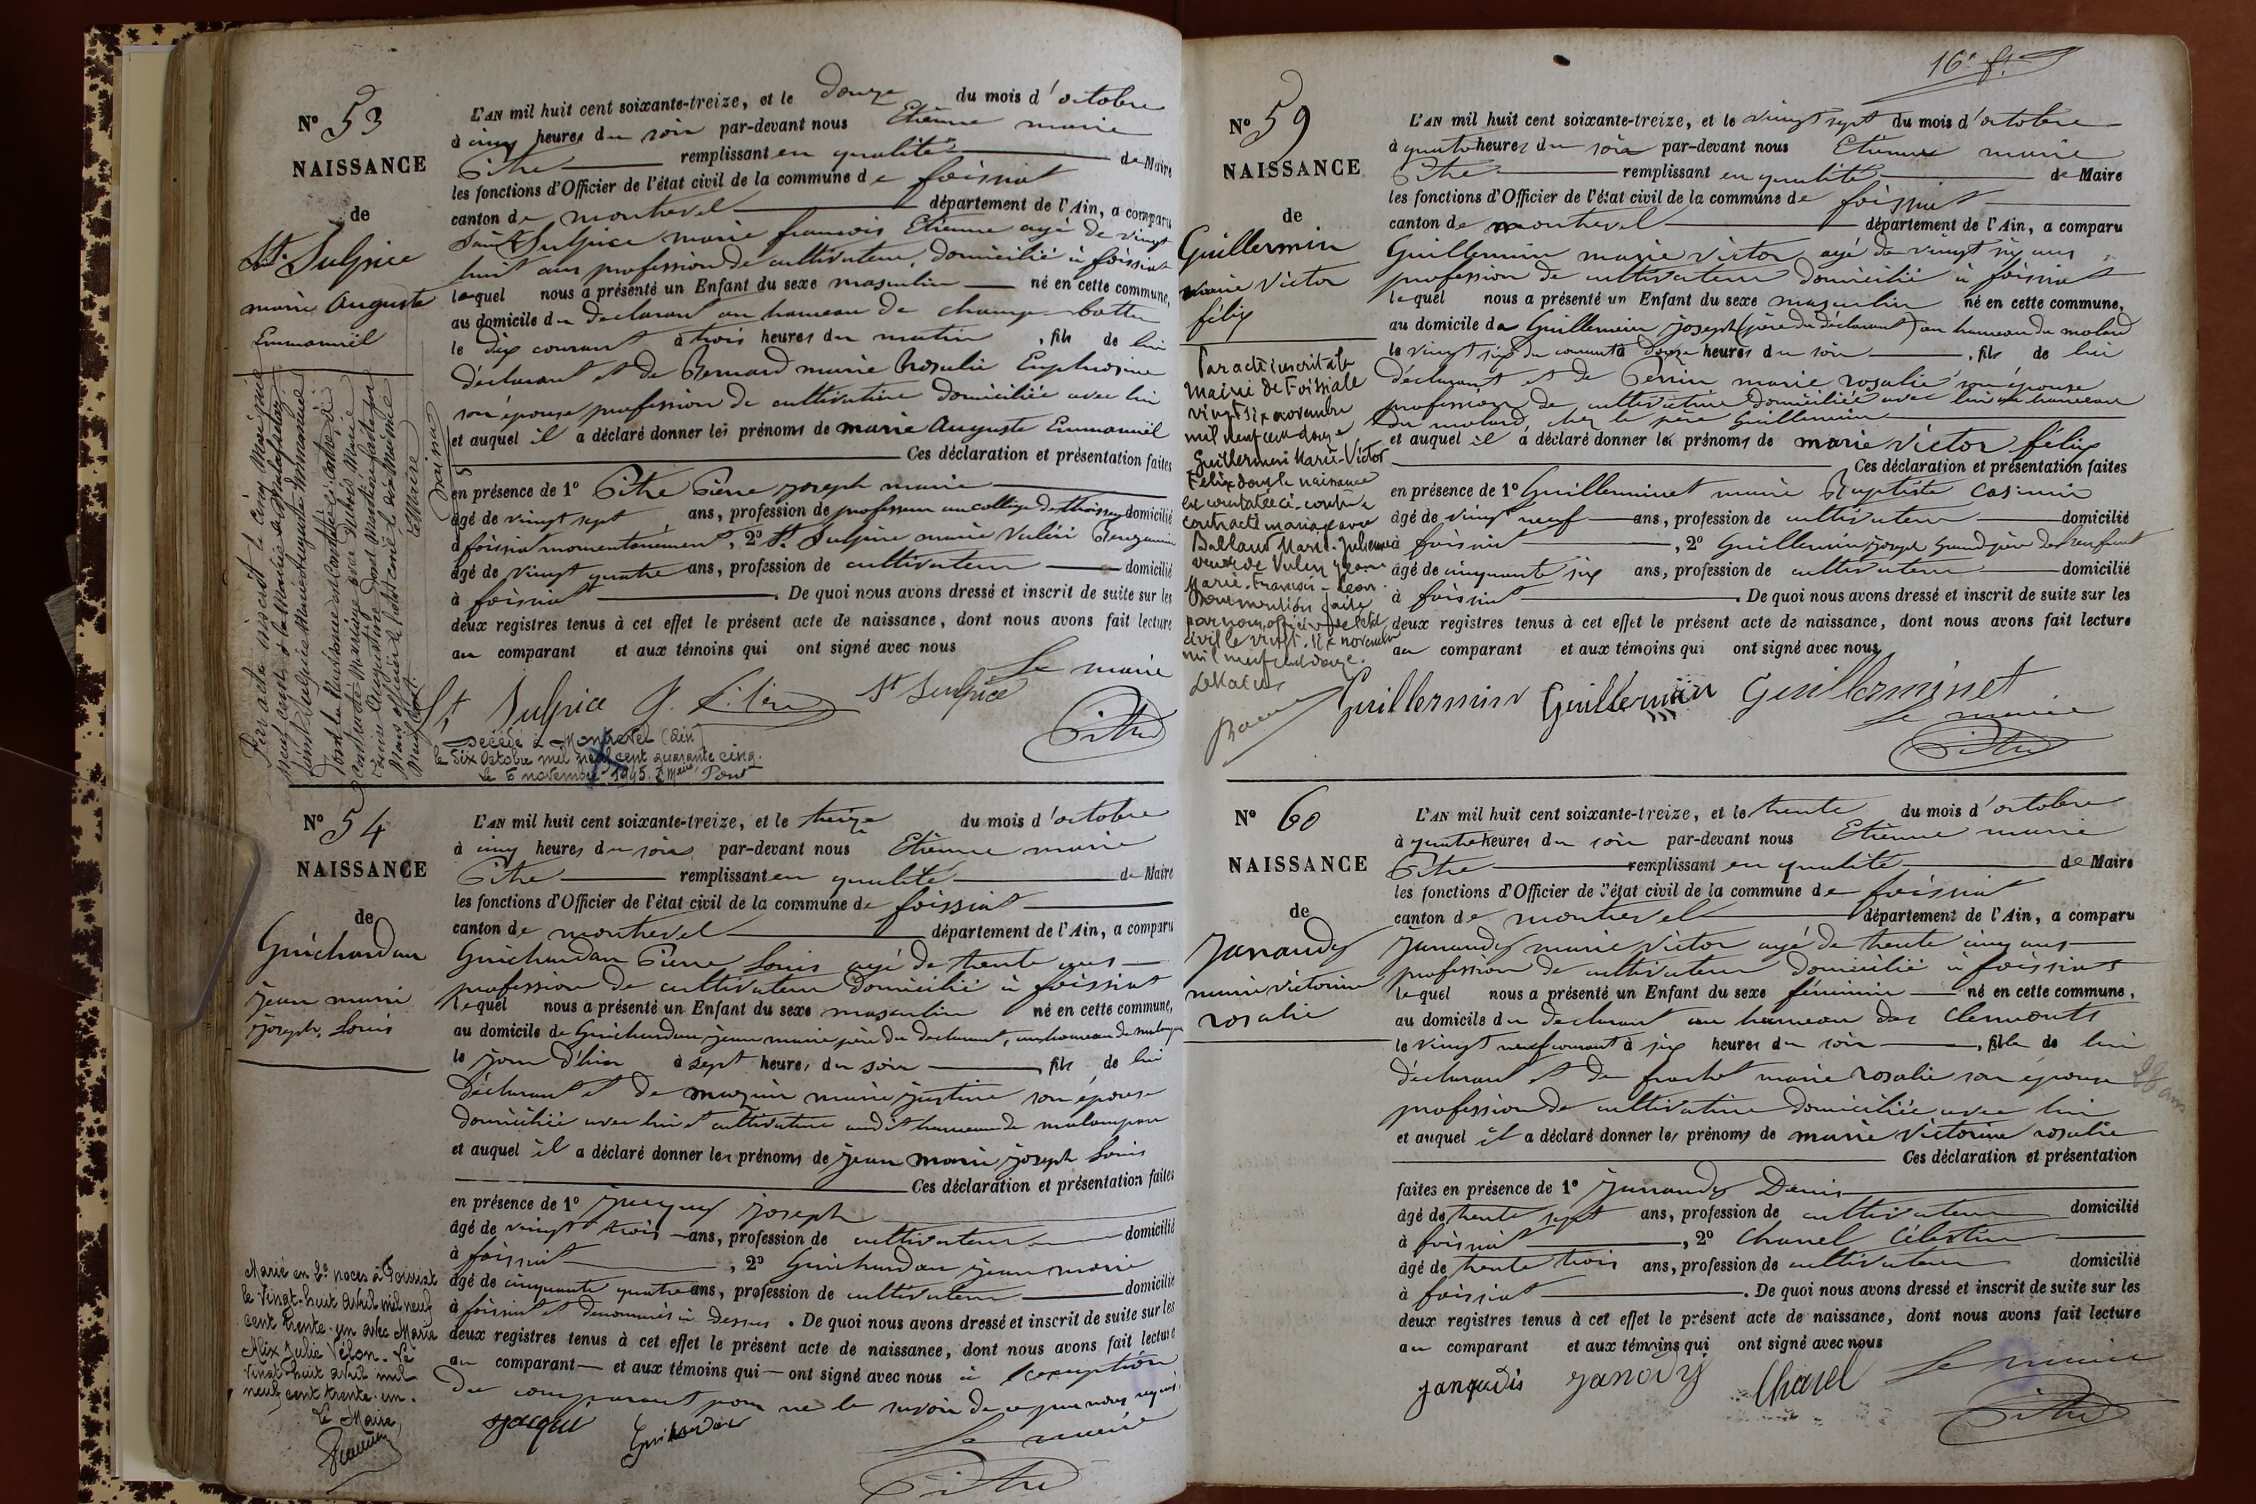 N° 53
NAISSANCE
de
St Sulpice
marie Auguste
Emmanuël
L'AN mil huit cent soixante-treize, et le douze du mois d'octobre
à cinq heures du soir par-devant nous Etienne marie
Pitre remplissant en qualité de Maire
les fonctions d'Officier de l'état civil de la commune de foissiat
canton de montrevel département de l'Ain, a comparu
Saint Sulpice marie françois Etienne agé de vingt
huit ans profession de cultivateur, domicilié à foissiat
lequel nous a présenté un Enfant du sexe masculin né en cette commune,
au domicile du declarant au hameau de
le dix courant à trois heures du matin, fils de lui
déclarant et de Bernard marie Rosalie Euphrosine
son épouse profession de cultivatrice domiciliée avec lui
et auquel il a déclaré donner les prénoms de marie Auguste Emmanuël
Ces déclaration et présentation faites
en présence de 1° Pitre Pierre joseph marie
âgé de vingt sept ans, profession de professeur au collège de thoissey domicilié
à foissiat momentanément, 2° St Sulpice marie Valéri Benjamin
âgé de vingt quatre ans, profession de cultivateur domicilié
à foissiat. De quoi nous avons dressé et inscrit de suite sur les
deux registres tenus à cet effet le présent acte de naissance, dont nous avons fait lecture
au comparant et aux témoins qui ont signé avec nous
Le maire
St Sulpice J. Pitre St Sulpice
Pitre
Décédé à Montrevel (Ain)
le Six Octobre mil neuf cent quarante cinq.
Le 6 novembre 1945. Le Maire,
N° 54
NAISSANCE
de
Guichardan
jean marie
joseph, Louis
L'AN mil huit cent soixante-treize, et le treize du mois d'octobre
à cinq heures du soir par-devant nous Etienne marie
Pitre remplissant en qualité de Maire
les fonctions d'Officier de l'état civil de la commune de foissiat
canton de montrevel département de l'Ain, a comparu
Guichardan Pierre Louis agé de trente ans
profession de cultivateur domicilié à foissiat
lequel nous a présenté un Enfant du sexe masculin né en cette commune,
au domicile de Guichardan jean marie père du declarant, au hameau de
le jour d'hier à sept heures du soir, fils de lui
déclarant et de marie justine son épouse
domiciliée avec lui et cultivatrice audit hameau de
et auquel il a déclaré donner les prénoms de jean marie joseph Louis
Ces déclaration et présentation faites
en présence de 1° Jacques joseph
âgé de vingt trois ans, profession de cultivateur domicilié
à foissiat, 2° Guichardan jean marie
âgé de cinquante quatre ans, profession de cultivateur domicilié
à foissiat et denommés ci dessus. De quoi nous avons dressé et inscrit de suite sur les
deux registres tenus à cet effet le présent acte de naissance, dont nous avons fait lecture
au comparant et aux témoins qui ont signé avec nous à l'exception
du comparant pour ne le savoir de ce par nous requis.
Le maire
Pitre
Marié en 2e noces à Foissiat
le vingt-huit avril mil neuf
cent trente-un avec Maria
Alix Julie Vélon. Le
vingt-huit avril mil
neuf cent trente-un.
Le Maire,
16e f.
N° 59
NAISSANCE
de
Guillermin
marie victor
félix
Par acte inscrit à la
Mairie de Foissiat le
vingt six novembre
mil neuf cent douze
Guillermin Marie-Victor
Félix dont la naissance
est constatée ci-contre a
contracté mariage avec
Ballaud Marie-Julienne
veuve de
Marie-François-Léon.
Pour mention faite
par nous, officier de l'état
civil le vingt-six novembre
mil neuf cent douze.
Le Maire
L'AN mil huit cent soixante-treize, et le vingt sept du mois d'octobre
à quatre heures du soir par-devant nous Etienne marie
Pitre remplissant en qualité de Maire
les fonctions d'Officier de l'état civil de la commune de foissiat
canton de montrevel département de l'Ain, a comparu
Guillermin marie victor, agé de vingt six ans,
profession de cultivateur domicilié à foissiat
lequel nous a présenté un Enfant du sexe masculin né en cette commune,
au domicile de Guillermin joseph (père du déclarant) au hameau du molard
le vingt six du courant à douze heures du soir, fils de lui
déclarant et de Perrin marie rosalie son épouse
profession de cultivatrice domiciliée avec lui au hameau
du molard, chez le père Guillermin
et auquel il a déclaré donner les prénoms de marie victor félix
Ces déclaration et présentation faites
en présence de 1° Guilleminet marie Baptiste Casimir
âgé de vingt neuf ans, profession de cultivateur domicilié
à foissiat, 2° Guillermin joseph Grand père de l'enfant
âgé de cinquante six ans, profession de cultivateur domicilié
à foissiat. De quoi nous avons dressé et inscrit de suite sur les
deux registres tenus à cet effet le présent acte de naissance, dont nous avons fait lecture
au comparant et aux témoins qui ont signé avec nous
Guillermin Guillermin Guilleminet
Le maire
Pitre
N° 60
NAISSANCE
de
Janaudy
marie victorine
rosalie
L'AN mil huit cent soixante-treize, et le trente du mois d'octobre
à quatre heures du soir par-devant nous Etienne marie
Pitre remplissant en qualité de Maire
les fonctions d'Officier de l'état civil de la commune de foissiat
canton de montrevel département de l'Ain, a comparu
Janaudy marie victor agé de trente cinq ans
profession de cultivateur domicilié à foissiat
lequel nous a présenté un Enfant du sexe féminin né en cette commune,
au domicile du declarant au hameau des Clermonts
le vingt neuf courant à six heures du soir, fille de lui
déclarant et de marie rosalie son épouse 28 ans
profession de cultivatrice domiciliée avec lui
et auquel il a déclaré donner les prénoms de marie victorine rosalie
Ces déclaration et présentation
faites en présence de 1° Janaudy Denis
âgé de trente sept ans, profession de cultivateur domicilié
à foissiat, 2° Chanel Célestin
âgé de trente trois ans, profession de cultivateur domicilié
à foissiat. De quoi nous avons dressé et inscrit de suite sur les
deux registres tenus à cet effet le présent acte de naissance, dont nous avons fait lecture
au comparant et aux témoins qui ont signé avec nous
Janaudy Chanel Le maire
Pitre